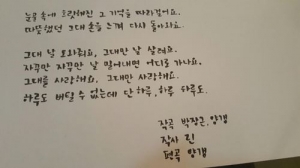 눈물 속에 흐릿해진 그 기억을 따라걸어요.
따뜻했던 그대 손을 느껴 다시 돌아와요.
그대 날 보아줘요, 그대만 날 살려요.
자꾸만 자꾸만 날 밀어내면 어디로 가나요.
그대를 사랑해요, 그대만 사랑해요.
하루도 버틸 수 없는데 단 하루, 하루 하루도.
작곡 박장근, 양갱
작사 린
편곡 양갱